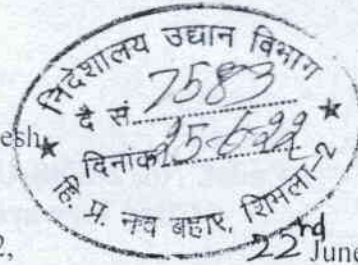 निदेशालय उद्यान विभाग
दै सं. 7583
esh
दिनांक 25-6-22
हि. प्र. नव बहार, शिमला-2
2,
22nd June